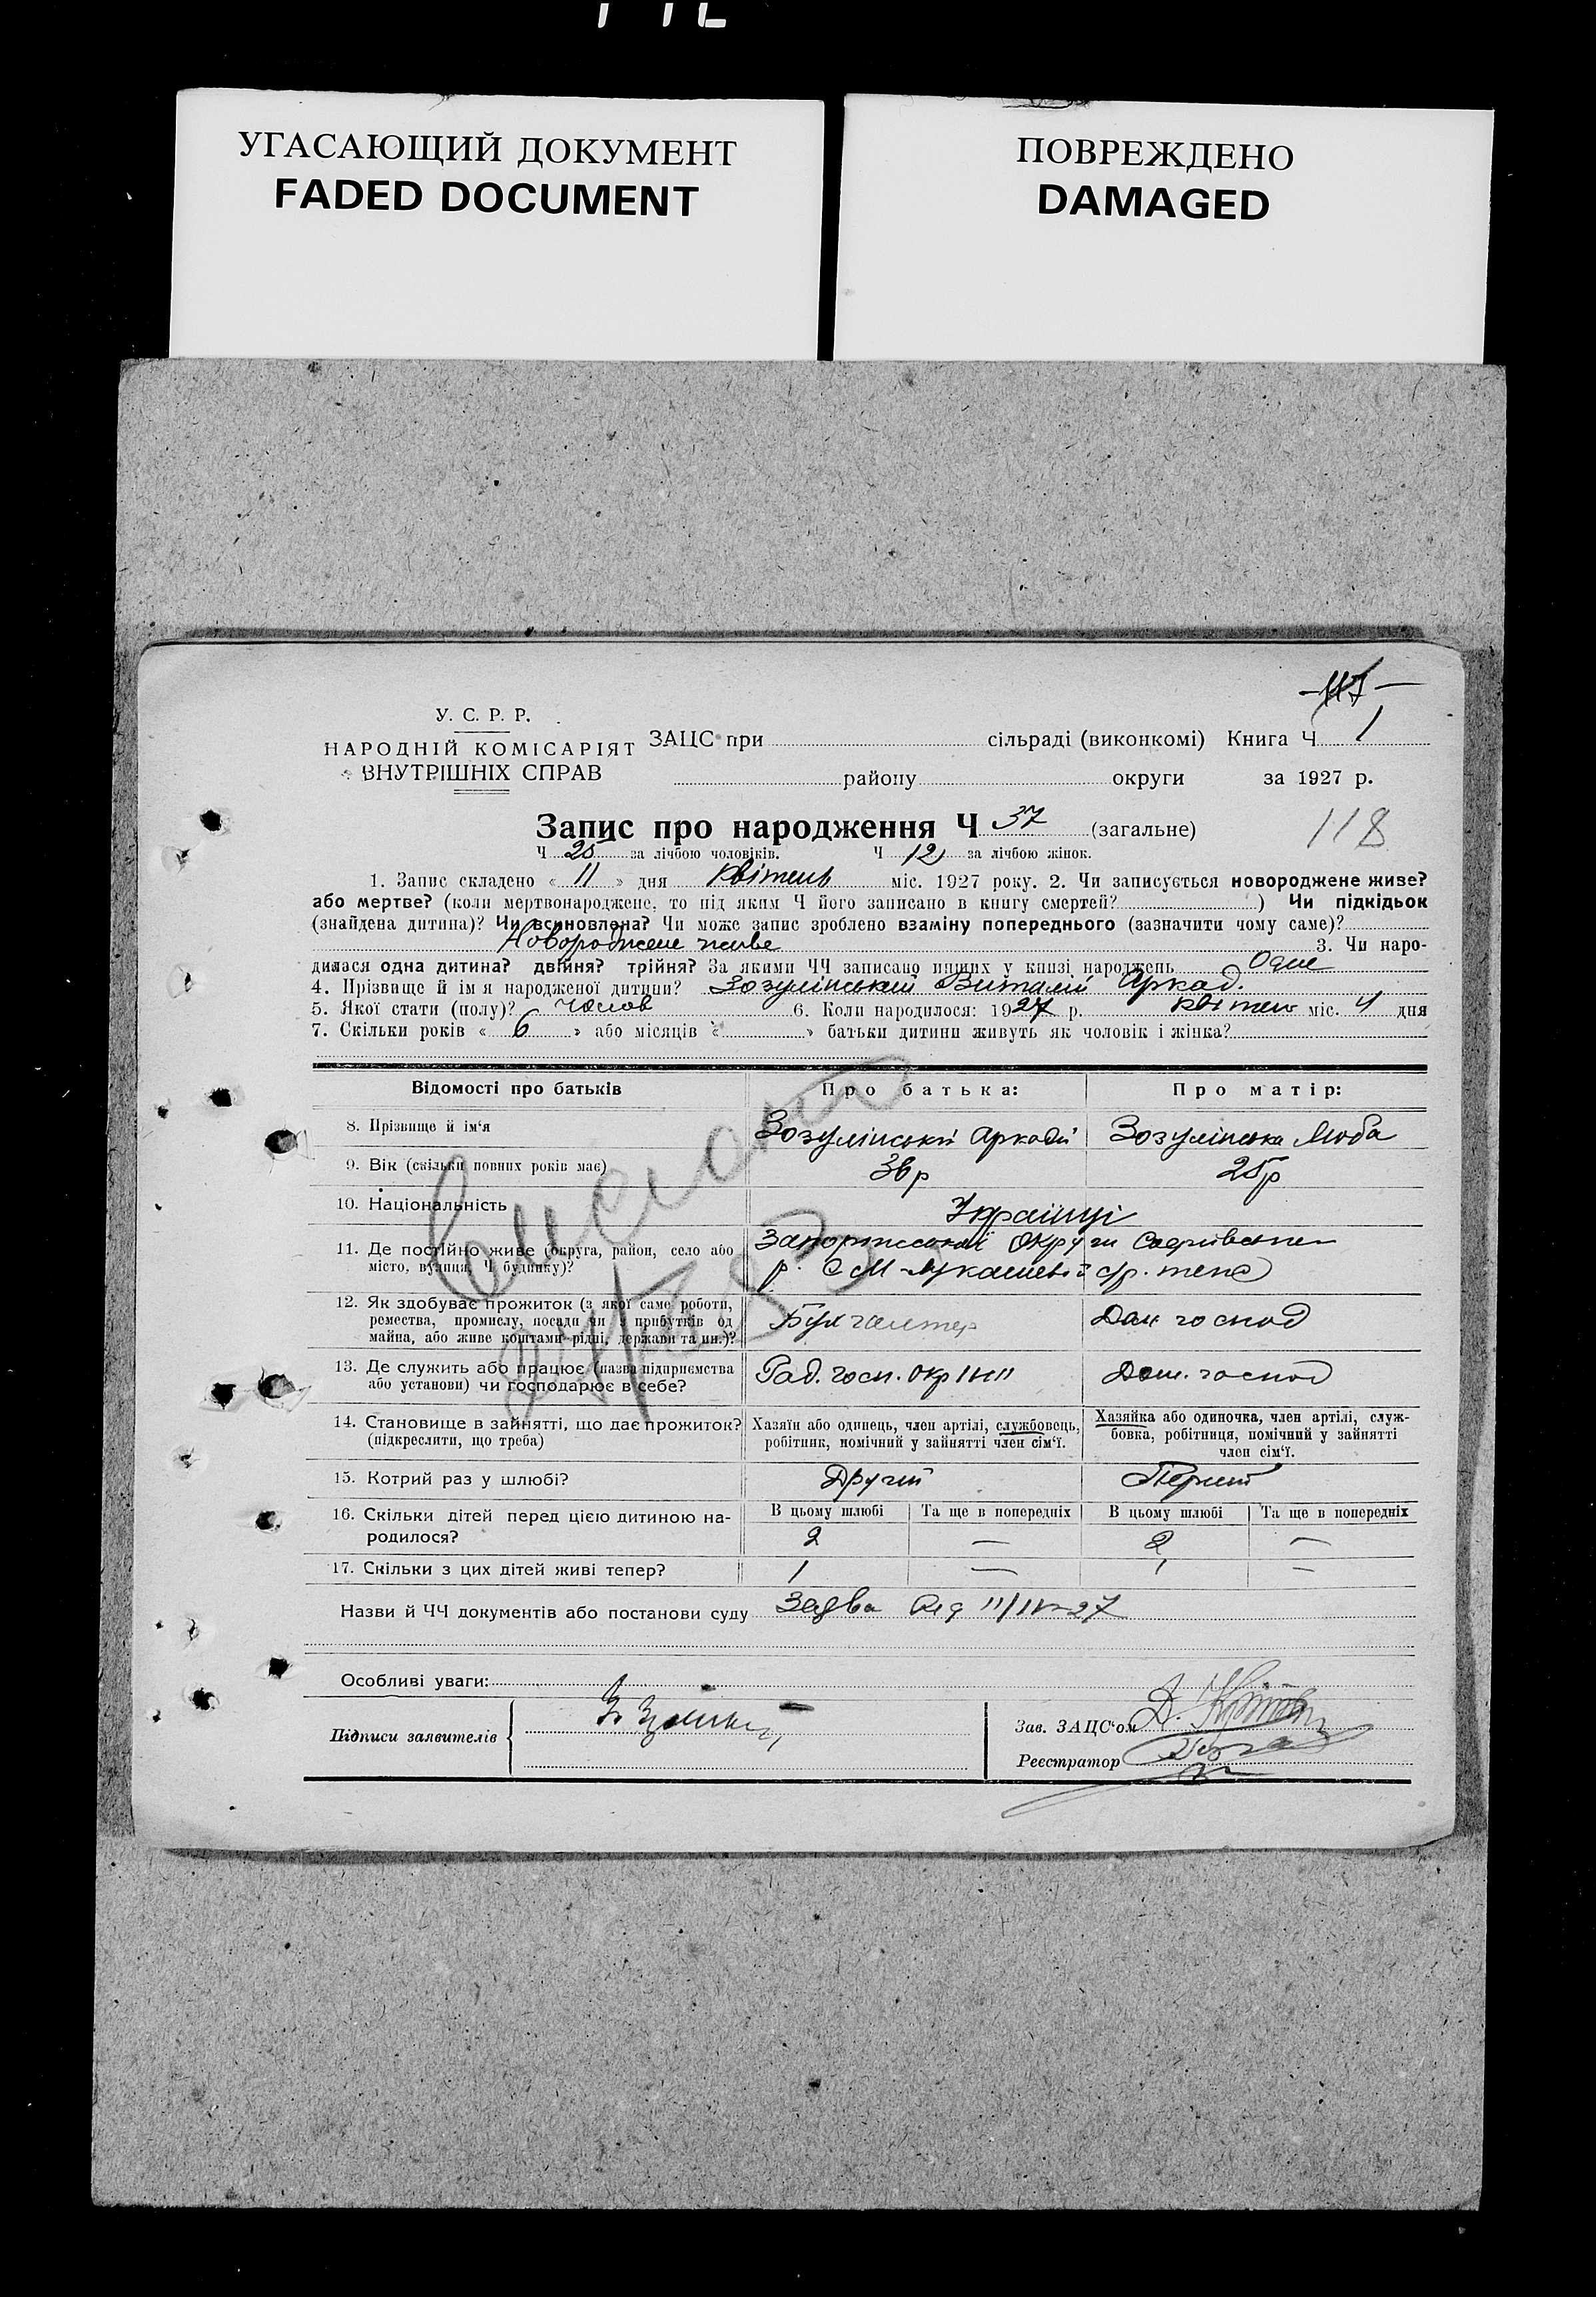 УГАСАЮЩИЙ ДОКУМЕНТ
FADED DOCUMENT
ПОВРЕЖДЕНО
DAMAGED
У. С. Р. Р.
НАРОДНІЙ КОМІСАРІЯТ
ВНУТРІШНІХ СПРАВ
ЗАЦС при сільраді (виконкомі) Книга Ч 1
району округи за 1927 р.
118
Запис про народження Ч 37 (загальне)
Ч 25 за лічбою чоловіків. Ч 12 за лічбою жінок.
1. Запис складено « 11 » дня квітень міс. 1927 року. 2. Чи записується новороджене живе?
або мертве? (коли мертвонароджене, то під яким Ч його записано в книгу смертей? ) Чи підкідьок
(знайдена дитина)? Чи всиновлена? Чи може запис зроблено взаміну попереднього (зазначити чому саме)?
Новороджене живе 3. Чи наро-
дилася одна дитина? двійня? трійня? За якими ЧЧ записано инших у книзі народжень Одне
4. Прізвище й ім'я народженої дитини? Зозулінський Виталій Аркад.
5. Якої стати (полу)? чолов 6. Коли народилося: 1927 р. квітень міс. 4 дня
7. Скільки років « 6 » або місяців « » батьки дитини живуть як чоловік і жінка?
Відомості про батьків Про батька: Про матір:
8. Прізвище й ім'я Зозулінський Аркадій Зозулінська Люба
9. Вік (скільки повних років має) 36р 25р
10. Національність Українці
11. Де постійно живе (округа, район, село або Запоріжської Округи
місто, вулиця, Ч будинку)? р. С М-Лукашевої
12. Як здобуває прожиток (з якої саме роботи,
ремества, промислу, посади чи з прибутків од
майна, або живе коштами рідні, держави та ин.)? Бухгалтер Дом господ
13. Де служить або працює (назва підприємства
або установи) чи господарює в себе? Рад. госп. Дом. господ
14. Становище в зайнятті, що дає прожиток?
(підкреслити, що треба)
Хазяїн або одинець, член артілі, службовець,
робітник, помічний у зайнятті член сім'ї.
Хазяйка або одиночка, член артілі, служ-
бовка, робітниця, помічний у зайнятті
член сім'ї.
15. Котрий раз у шлюбі? Другий Перший
16. Скільки дітей перед цією дитиною на-
родилося?
В цьому шлюбі Та ще в попередніх В цьому шлюбі Та ще в попередніх
2 — 2 —
17. Скільки з цих дітей живі тепер? 1 — 1 —
Назви й ЧЧ документів або постанови суду Заява від 11/IV-27
Особливі уваги:
Підписи заявителів
Зав. ЗАЦС'ом
Реєстратор